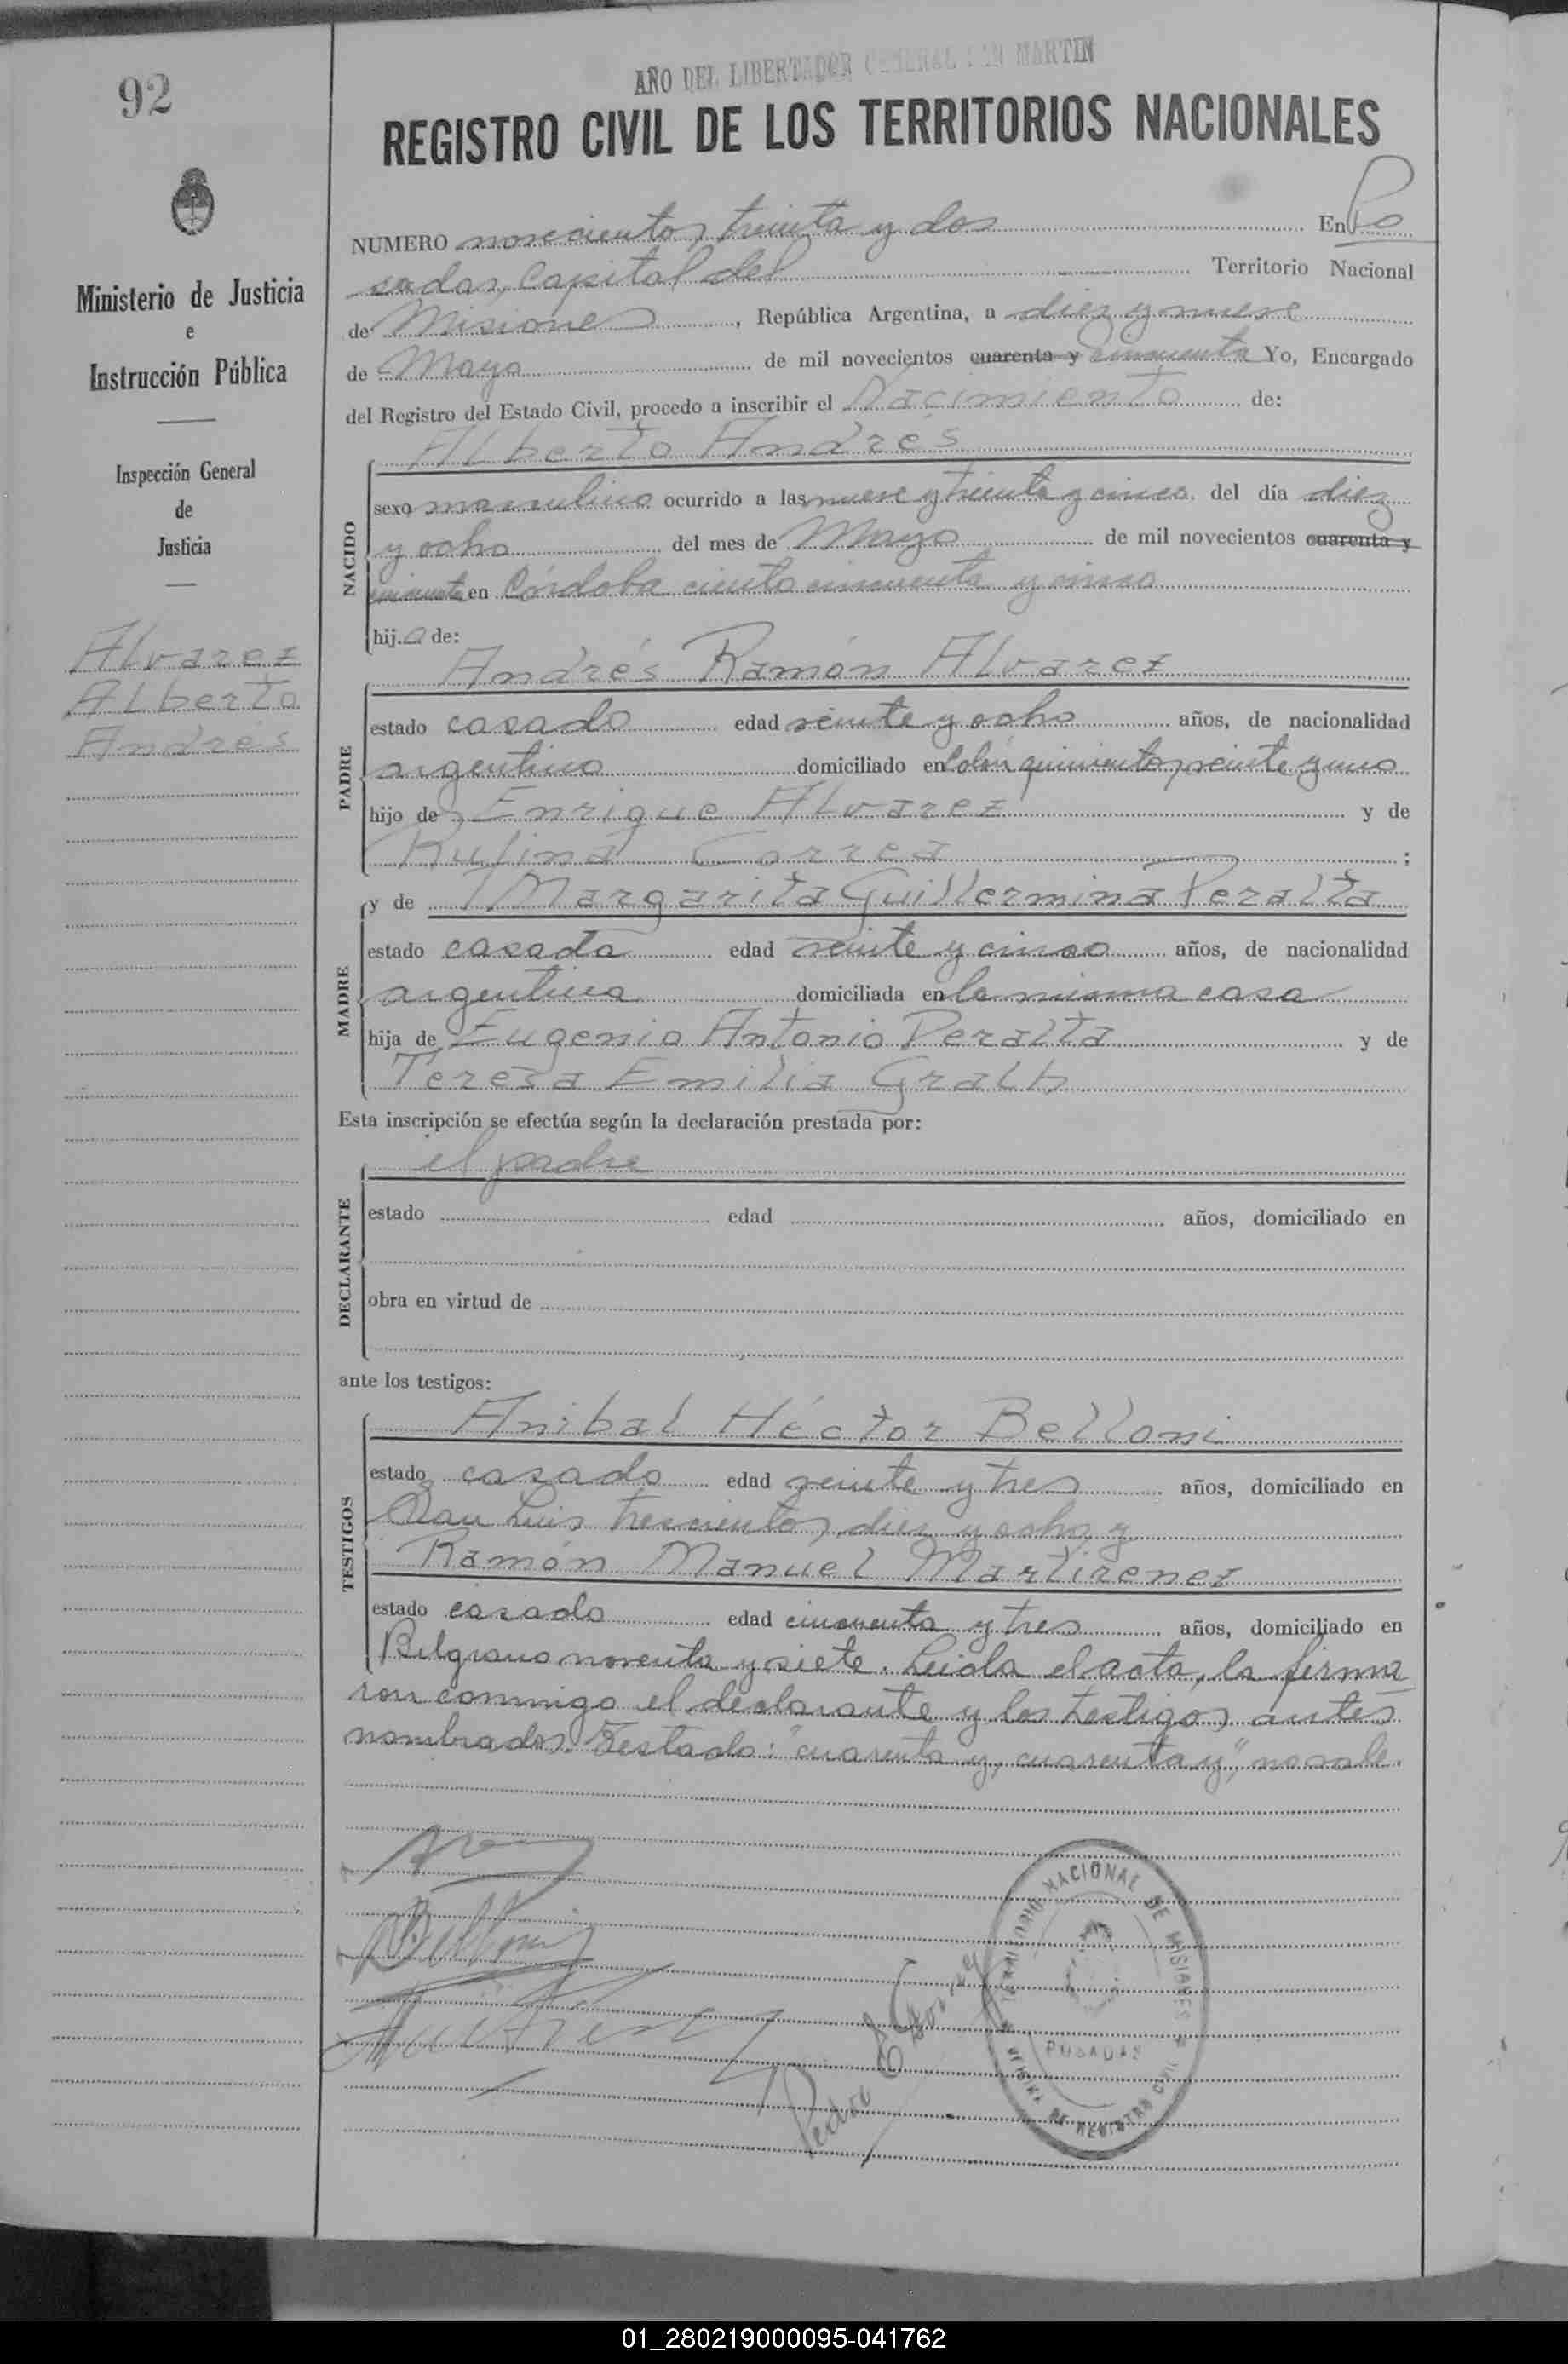 92
AÑO DEL LIBERTADOR GENERAL SAN MARTIN
REGISTRO CIVIL DE LOS TERRITORIOS NACIONALES
Ministerio de Justicia
e
Instrucción Pública
Inspección General
de
Justicia
Alvarez
Alberto
Andrés
NUMERO novecientos treinta y dos En Po
sadas, Capital del Territorio Nacional
de Misiones, República Argentina, a diez y nueve
de Mayo de mil novecientos cuarenta y cincuenta Yo, Encargado
del Registro del Estado Civil, procedo a inscribir el Nacimiento de:
NACIDO
Alberto Andrés
sexo masculino ocurrido a las nueve y treinta y cinco del día diez
y ocho del mes de Mayo de mil novecientos cuarenta y
cincuenta en Córdoba ciento cincuenta y cinco
hijo de:
PADRE
Andrés Ramón Alvarez
estado casado edad veinte y ocho años, de nacionalidad
argentino domiciliado en Colón quinientos veinte y uno
hijo de Enrique Alvarez y de
Rufina Correa ;
MADRE
y de Margarita Guillermina Peralta
estado casada edad veinte y cinco años, de nacionalidad
argentina domiciliada en la misma casa
hija de Eugenio Antonio Peralta y de
Teresa Emilia Gralh
Esta inscripción se efectúa según la declaración prestada por:
DECLARANTE
el padre
estado edad años, domiciliado en
obra en virtud de
ante los testigos:
TESTIGOS
Anibal Héctor Belloni
estado casado edad veinte y tres años, domiciliado en
San Luis trescientos diez y ocho y
Ramón Manuel Martirenez
estado casado edad cincuenta y tres años, domiciliado en
Belgrano noventa y siete. Leida el acta, la firma
ron conmigo el declarante y los testigos antes
nombrados. Testado: "cuarenta y, cuarenta y", no vale.
TERRITORIO NACIONAL DE MISIONES
POSADAS
OFICINA DE REGISTRO CIVIL
Pedro
01_280219000095-041762